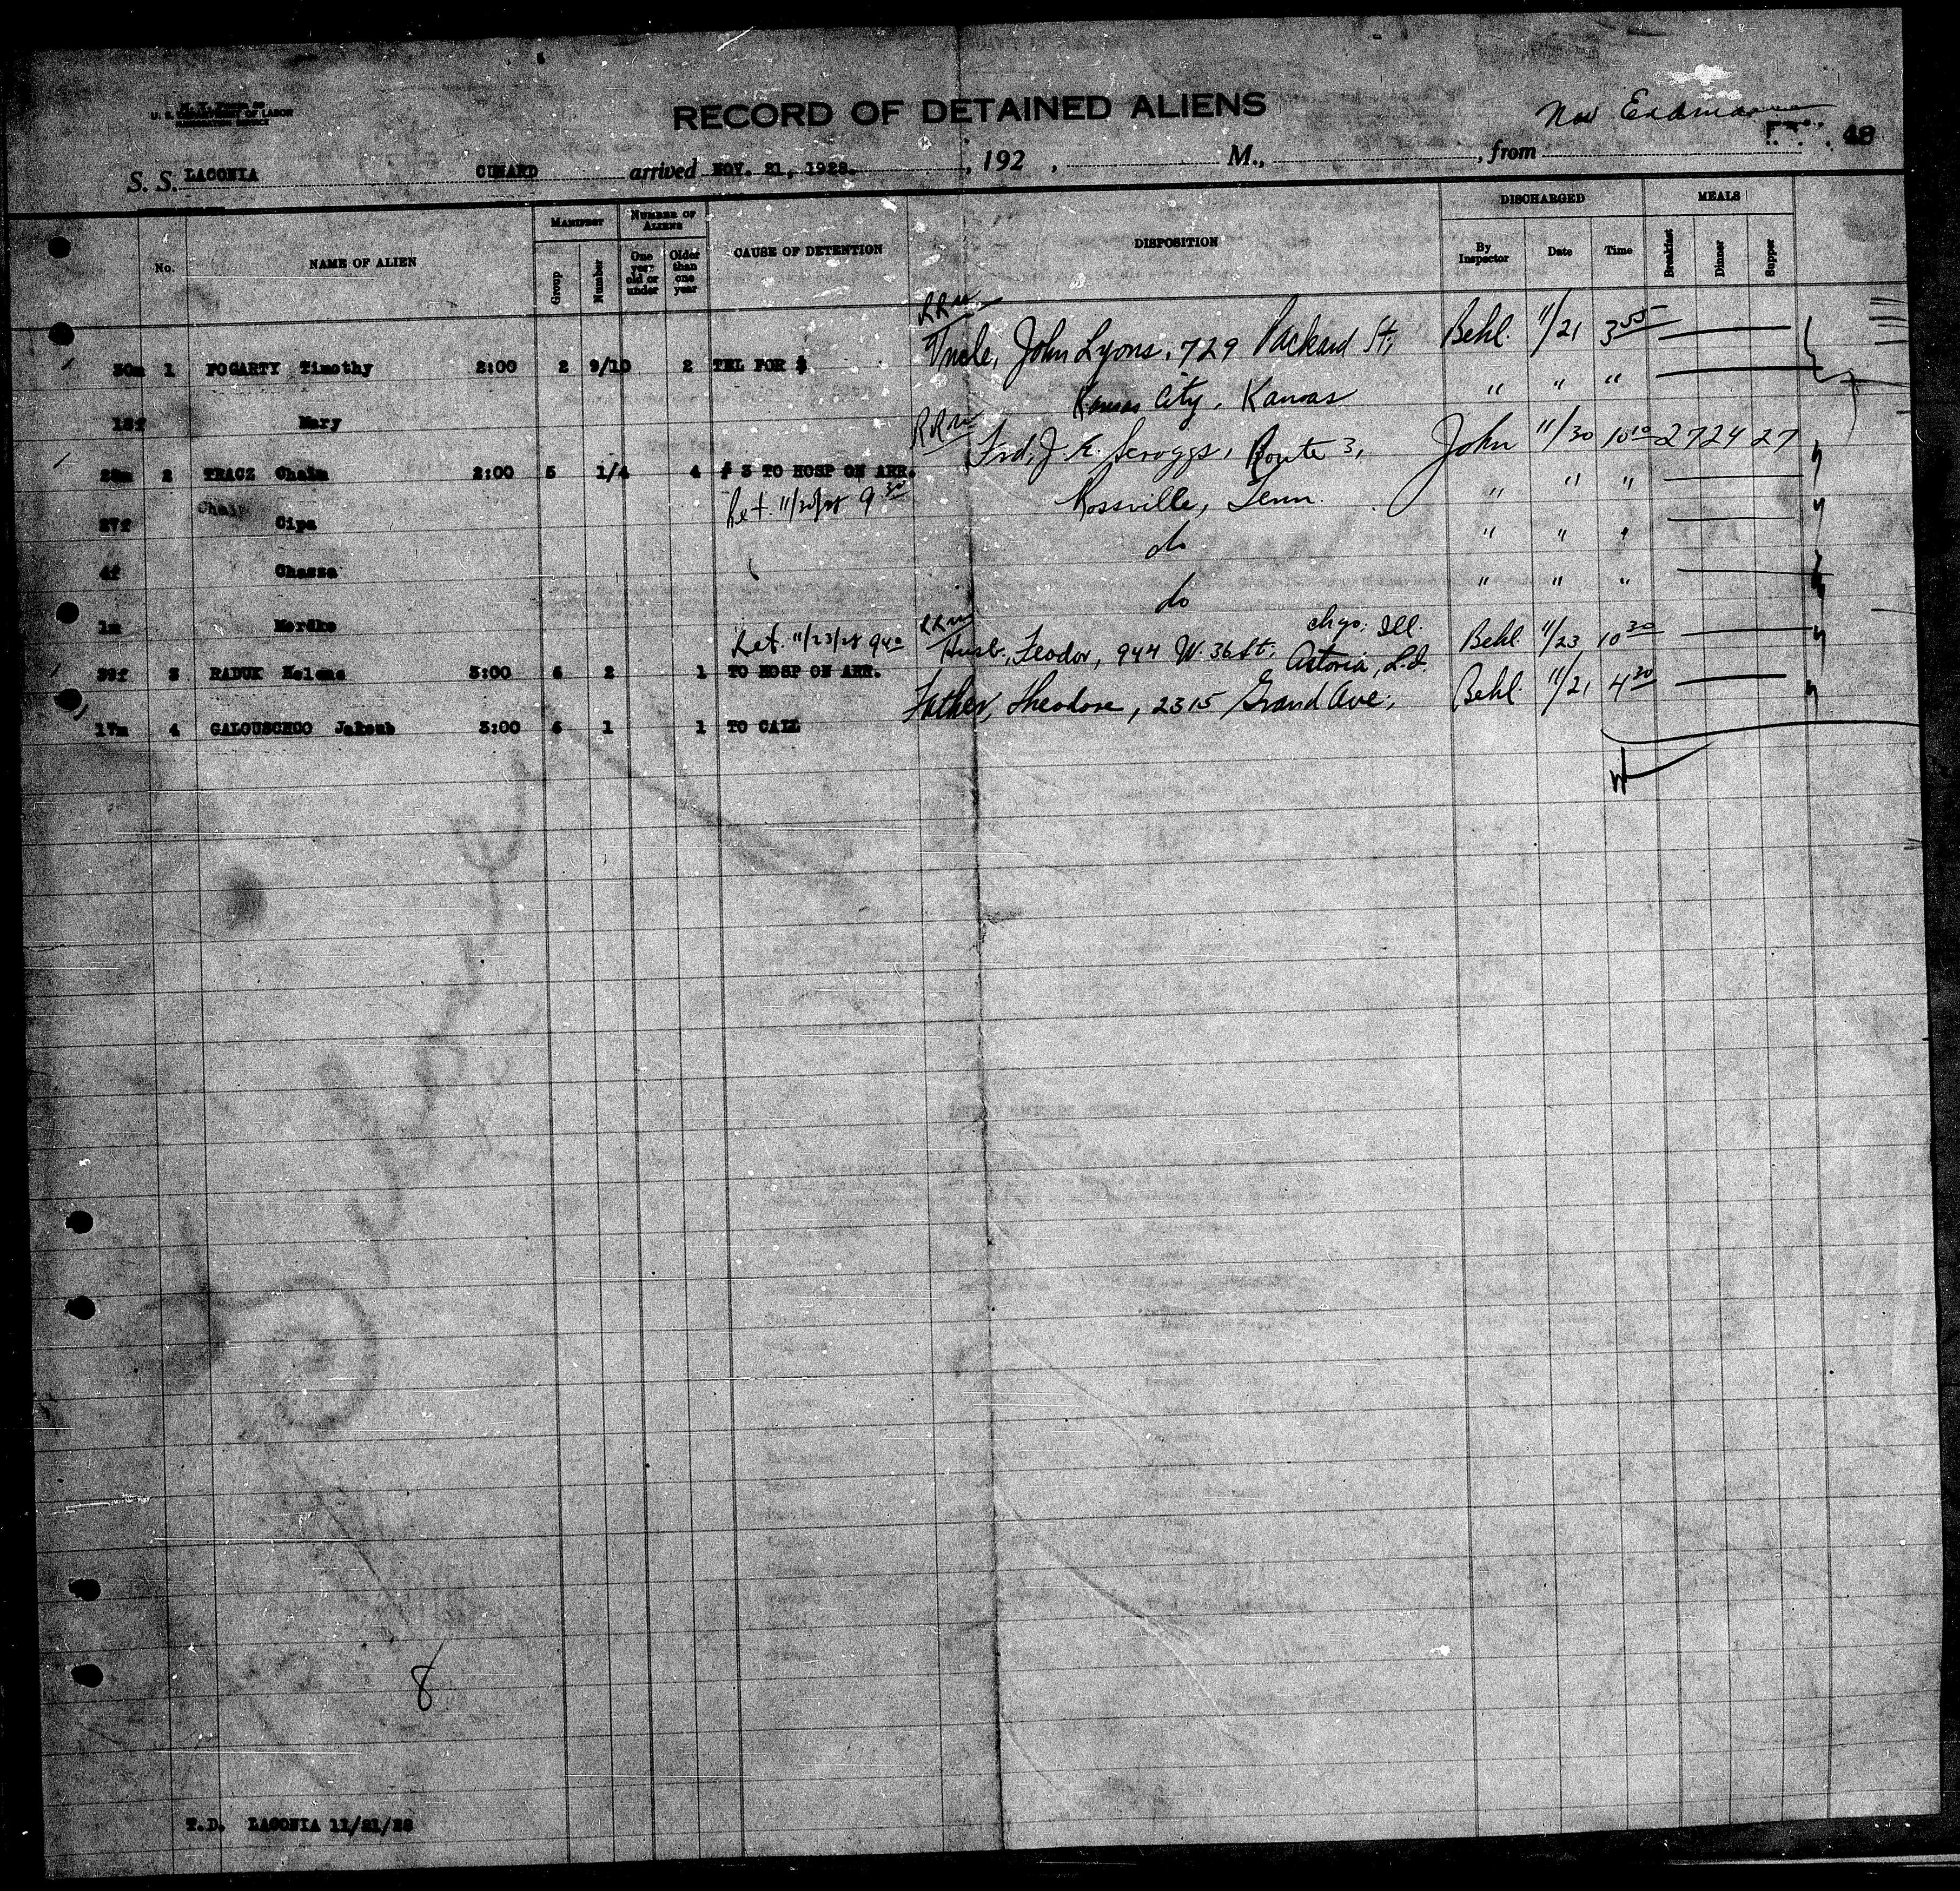 U. S. DEPARTMENT OF LABOR
RECORD OF DETAINED ALIENS
48
S. S. LACONIA CUNARD arrived NOV. 21, 1928. , 192 , M., , from
MANIFEST NUMBER OF ALIENS DISCHARGED MEALS
No. NAME OF ALIEN Group Number One year old or under Older than one year CAUSE OF DETENTION DISPOSITION By Inspector Date Time Breakfast Dinner Supper
30m 1 FOGARTY Timothy 2:00 2 9/10 2 TEL FOR $ Uncle, John Lyons, 729 Packard St, Behl. 11/21 3 55
18f Mary Kansas City, Kansas " " "
2 TRACZ Chaim 2:00 5 1/4 4 # 3 TO HOSP ON ARR. Frd, J. E. Scroggs, Route 3, John 11/30 10 10 27 24 27
27f Cipa Ret. 11/30/28 9 30 Rossville, Tenn. " " "
4f Chassa do " " "
1m Mordko do " " "
Ret. 11/23/28 9 40 chgo. Ill.
39f 3 RADUK Helene 3:00 6 2 1 TO HOSP ON ARR. Husb, Feodor, 944 W. 36 St, Behl 11/23 10 30
Astoria, L.I.
17m 4 GALOUSCHCO Jakoub 3:00 6 1 1 TO CALL Father, Theodore, 2315 Grand Ave, Behl. 11/21 4 30
8
T.D. LACONIA 11/21/28